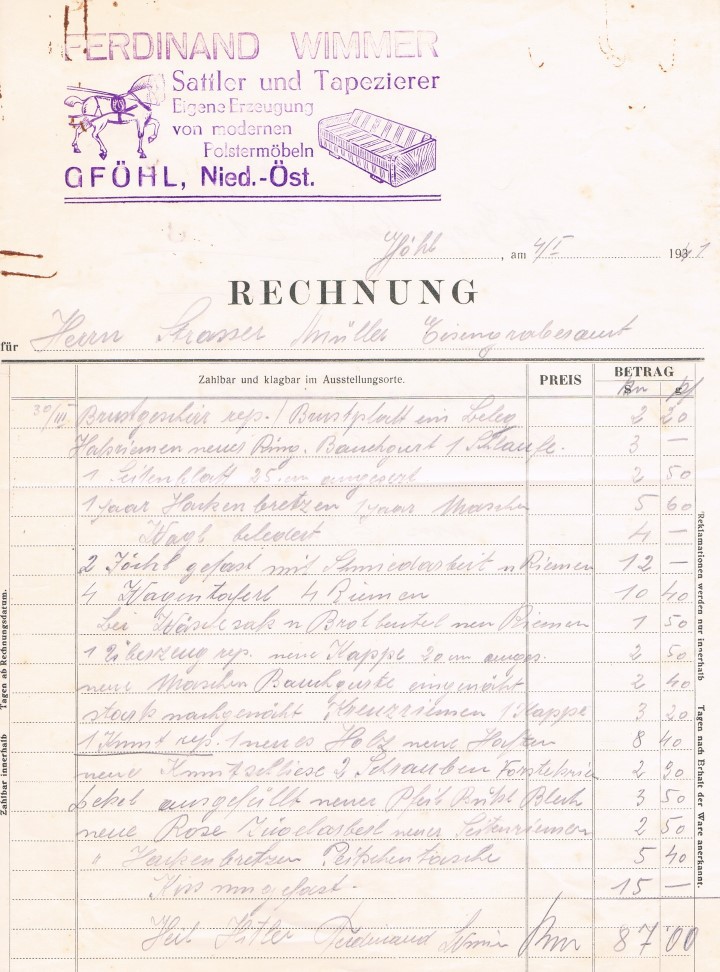 FERDINAND WIMMER
Sattler und Tapezierer
Eigene Erzeugung
von modernen
Polstermöbeln
GFÖHL, Nied.-Öst.
Gföhl, am 4/I 1941
RECHNUNG
für Herrn Strasser Müller Eisengrabesamt
Zahlbar und klagbar im Ausstellungsorte. PREIS BETRAG
S g
30/III Brustgeschir rep. / Brustplatt ein Beleg 2 20
Halsriemen neues Ring. Bauchgurt 1 Schlaufe. 3 —
1 Seitenblatt 25 cm angesezt 2 50
1 paar Hackenbretzen 1 paar Maschen 5 60
Wagl beledert 4 —
2 Jöchl gefast mit Schmiedarbeit u Riemen 12 —
4 Wagentaferl 4 Riemen 10 40
bei Wäschesak u Brotbeutel neu Riemen 1 50
1 rep. neue Kappe 20 cm anges. 2 50
neue Maschen Bauchgurte eingenäht 2 40
stark nachgenäht Kreuzriemen 1 Kappe 3 20
1 Kumt rep. 1 neues Holz neue Haften 8 40
neue 2 Schrauben 2 90
ausgefüllt neuer Blech 3 50
neue Rose Zügelarbeit neuer Seitenriemen 2 50
" Hackenbretzen Peitschentasche 5 40
15 —
Heil Hitler Ferdinand Wimmer 87 00
Zahlbar innerhalb Tagen ab Rechnungsdatum.
Reklamationen werden nur innerhalb Tagen nach Erhalt der Ware anerkannt.